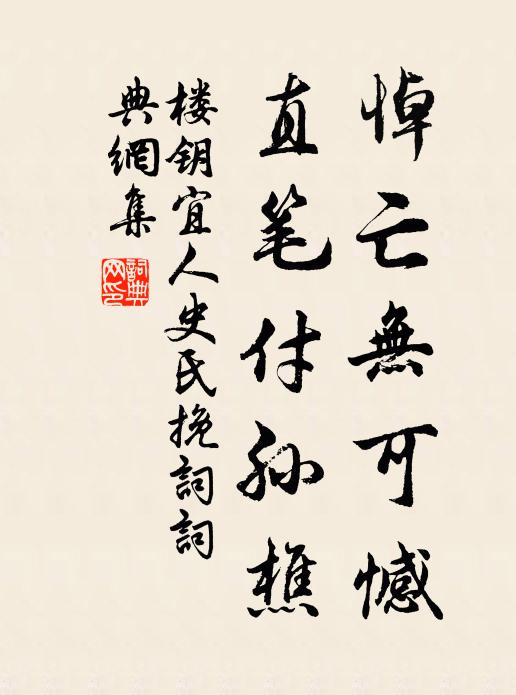 悼亡無可憾
直笔付孙樵
楼钥宜人史氏挽詞詞
典網集
詞典網印